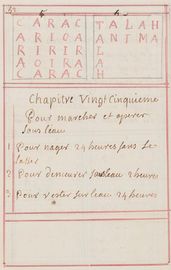 C A R A C
A R I O A
R I R I R
A O I R A
C A R A C
T A L A H
A N I M A
L
A
H
Chapitre Vingt Cinquieme
Pour marcher et operer
sous leau
1 Pour nager 24 heures sans se
lasser
2 Pour demeurer sous leau 2 heures
3 Pour rester sur leau 24 heures